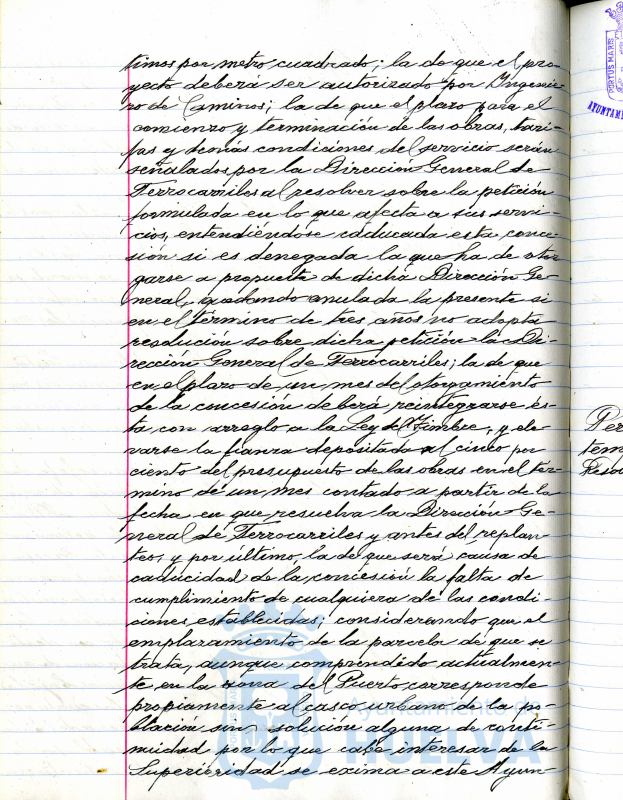 timos por metro cuadrado; la de que el pro-
yecto deberá ser autorizado por Ingenie-
ro de Caminos; la de que el plazo para el
comienzo y terminación de las obras, tari-
fas y demás condiciones del servicio serán
señalados por la Dirección General de
Ferrocarriles al resolver sobre la petición
formulada en lo que afecta a sus servi-
cios, entendiéndose caducada esta conce-
sión si es denegada la que ha de otor
garse a propuesta de dicha Dirección Ge-
neral, quedando anulada la presente si
en el término de tres años no adopta
resolución sobre dicha petición la Di-
rección General de Ferrocarriles; la de que
en el plazo de un mes del otorgamiento
de la concesión deberá reintegrarse és-
ta con arreglo a la Ley del Timbre, y ele-
varse la fianza depositada al cinco por
ciento del presupuesto de las obras en el tér-
mino de un mes contado a partir de la
fecha en que resuelva la Dirección Ge-
neral de Ferrocarriles y antes del replan-
teo, y por último, la de que será causa de
caducidad de la concesión la falta de
cumplimiento de cualquiera de las condi-
ciones establecidas; considerando que el
emplazamiento de la parcela de que se
trata, aunque comprendido actualmen-
te en la zona del Puerto, corresponde
propiamente al casco urbano de la po-
blación sin solución alguna de conti-
nuidad por lo que cabe interesar de la
Superioridad se exima a este Ayun-
PORTUS MARIS
AYUNTAMI
Per
tem
Ayuntamiento de
HUELVA